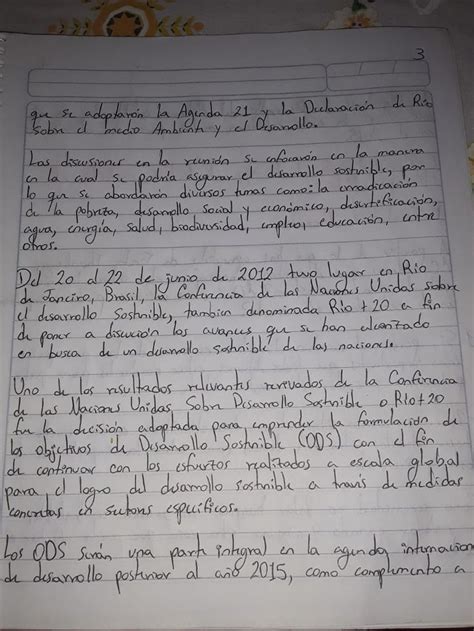 3
que se adoptarón la Agenda 21 y la Declaración de Río
sobre el medio Ambiente y el Desarrollo.
Las discusiones en la reunión se enfocarón en la manera
en la cual se podría asegurar el desarrollo sostnible, por
lo que se abordarón diversos temas como: la erradicación
de la pobreza, desarrollo social y económico, desertificación,
agua, energía, salud, biodiversidad, empleo, educación, entre
otros.
Del 20 al 22 de junio de 2012 tuvo lugar en Río
de Janeiro, Brasil, la Conferencia de las Naciones Unidas sobre
el desarrollo Sostnible, tambien denominada Río + 20 a fin
de poner a discución los avances que se han alcanzado
en busca de un desarrollo sostnible de las naciones.
Uno de los resultados relevantes de la Conferencia
de las Naciones Unidas Sobre Desarrollo Sostnible o Río+20
fue la decisión adoptada para emprender la formulación de
los objetivos de Desarrollo Sostnible (ODS) con el fin
de continuar con los esfuertos realitados a escala global
para el logro del desarrollo sostnible a través de medidas
concretas en sectores específicos.
Los ODS serán una parte integral en la agenda internacion
de desarrollo posterior al año 2015, como complemento a